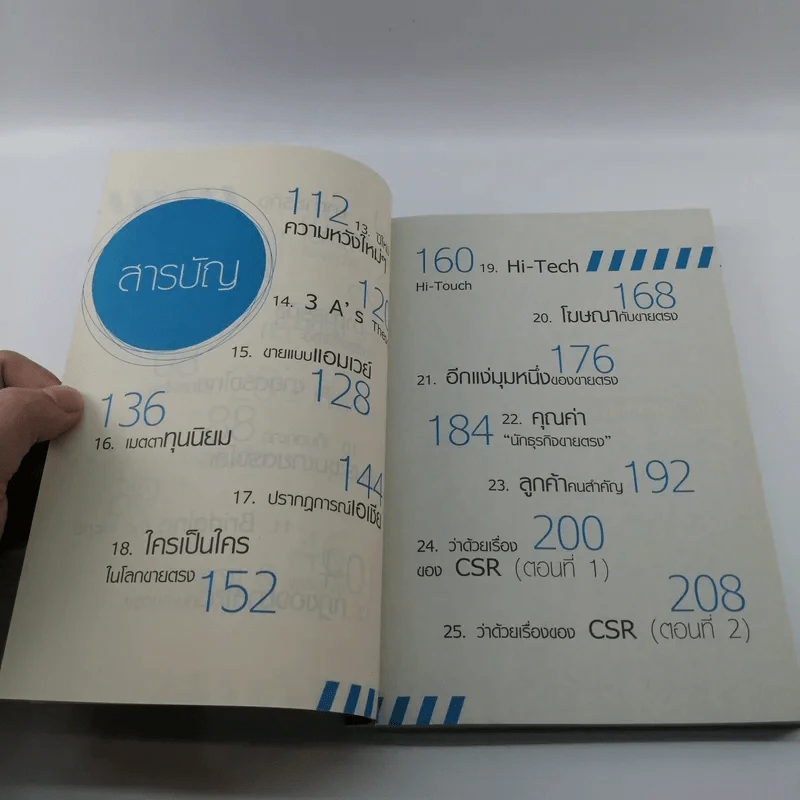 สารบัญ
112 13.
ความหวังใหม่ๆ
14. 3 A's
15. ขายแบบแอมเวย์
128
136
16. เมตตาทุนนิยม
144
17. ปรากฏการณ์เอเชีย
18. ใครเป็นใคร
ในโลกขายตรง 152
160 19. Hi-Tech
Hi-Touch
168
20. โฆษณากับขายตรง
176
21. อีกแง่มุมหนึ่งของขายตรง
184 22. คุณค่า
“นักธุรกิจขายตรง”
23. ลูกค้าคนสำคัญ 192
24. ว่าด้วยเรื่อง 200
ของ CSR (ตอนที่ 1)
208
25. ว่าด้วยเรื่องของ CSR (ตอนที่ 2)